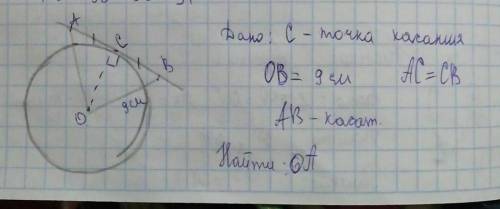 A
C
B
O
9 см
Дано: C - точка касания
OB = 9 см AC = CB
AB - касат.
Найти: OA